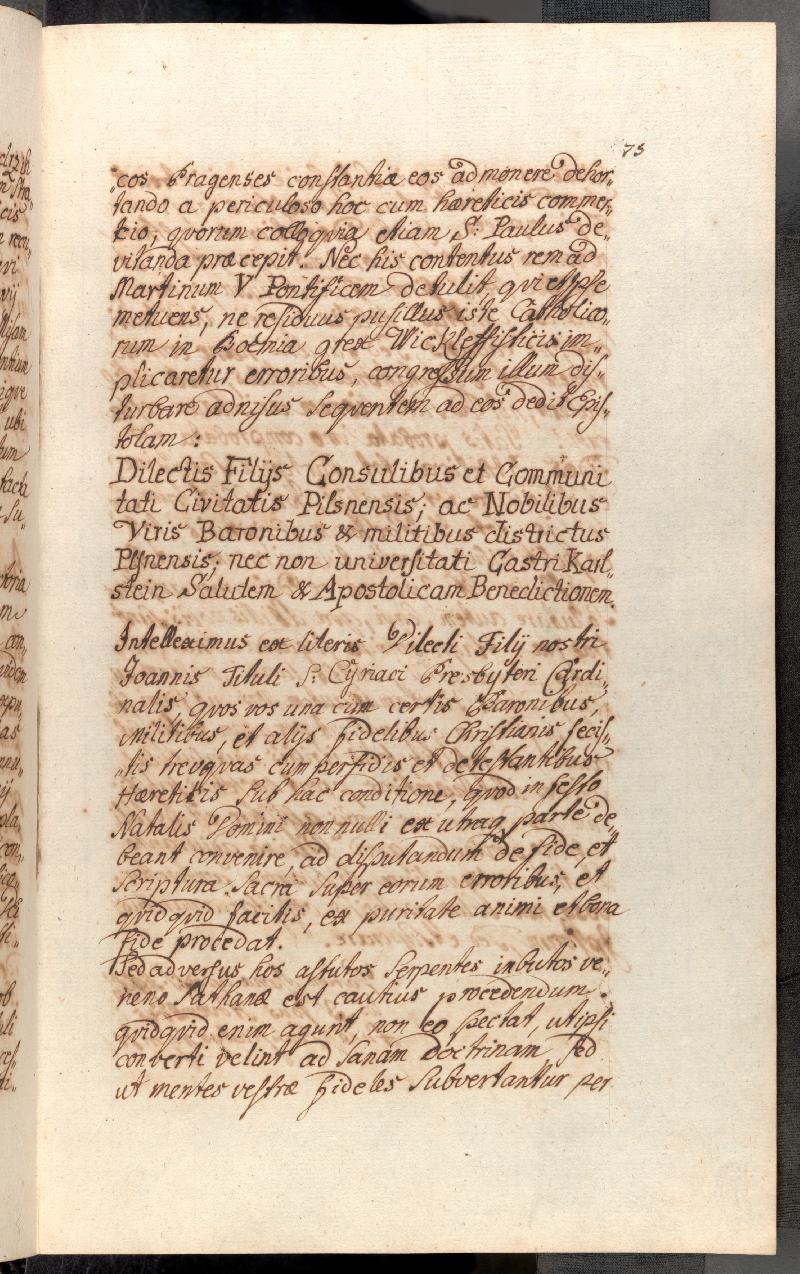 73
„cos Pragenses constantiæ eos admonere dehor„
tando a periculoso hoc cum hæreticis commer„
cio, qvorum colloqvia etiam S: Paulus de„
vitanda præcepit. Nec his contentus rem ad
Martinum V Pontificem detulit, qvi et ipse
metuens, ne residuus pusillus iste Catholico„
rum in Boëmia grex Wickleffisticis im„
plicaretur erroribus, congressum illum dis„
turbare adnisus seqventem ad eos dedit Epis„
tolam:
Dilectis Filijs Consulibus et Communi
tati Civitatis Pilsnensis; ac Nobilibus
Viris Baronibus & militibus districtus
Plsnensis; nec non universitati Castri Karl„
stein Salutem & Apostolicam Benedictionem.
Intelleximus ex literis Dilecti Filij nostri
Joannis Tituli S: Cyriaci Presbyteri Cardi„
nalis, qvos vos una cum certis Baronibus,
Militibus, et alijs fidelibus Christianis fecis„
„tis treuqvas cum perfidis et detestantibus
Hæreticis sub hac conditione, qvod in festo
Natalis Domini nonnulli ex utraq parte de„
beant convenire, ad disputandum de fide, et
Scriptura Sacra super eorum erroribus, et
qvidqvid facitis, ex puritate animi et bona
fide procedat.
Sed adversus hos astutos Serpentes imbutos ve„
neno Sathanæ est cautius procedendum.
qvidqvid enim agunt, non eo spectat, ut ipsi
converti velint ad sanam Doctrinam, sed
ut mentes vestræ fideles subvertantur per